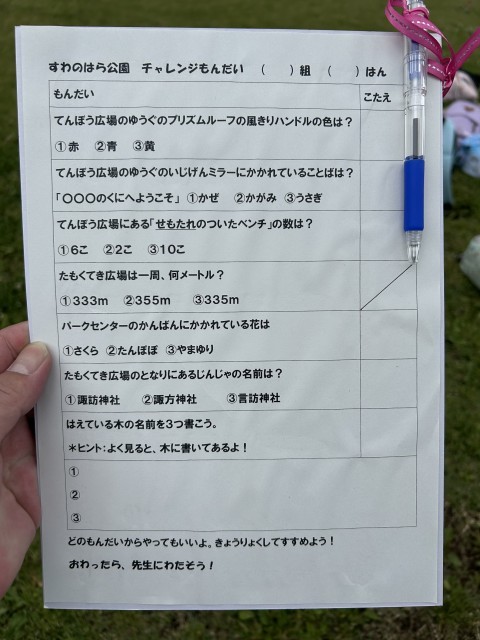 すわのはら公園　チャレンジもんだい　（　　）組　（　　）はん
もんだい　こたえ
てんぼう広場のゆうぐのプリズムルーフの風きりハンドルの色は？
①赤　②青　③黄
てんぼう広場のゆうぐのいじげんミラーにかかれていることばは？
「〇〇〇のくにへようこそ」　①かぜ　②かがみ　③うさぎ
てんぼう広場にある「せもたれのついたベンチ」の数は？
①6こ　②2こ　③10こ
たもくてき広場は一周、何メートル？
①333m　②355m　③335m
パークセンターのかんばんにかかれている花は
①さくら　②たんぽぽ　③やまゆり
たもくてき広場のとなりにあるじんじゃの名前は？
①諏訪神社　②諏方神社　③言訪神社
はえている木の名前を3つ書こう。
＊ヒント：よく見ると、木に書いてあるよ！
①
②
③
どのもんだいからやってもいいよ。きょうりょくしてすすめよう！
おわったら、先生にわたそう！